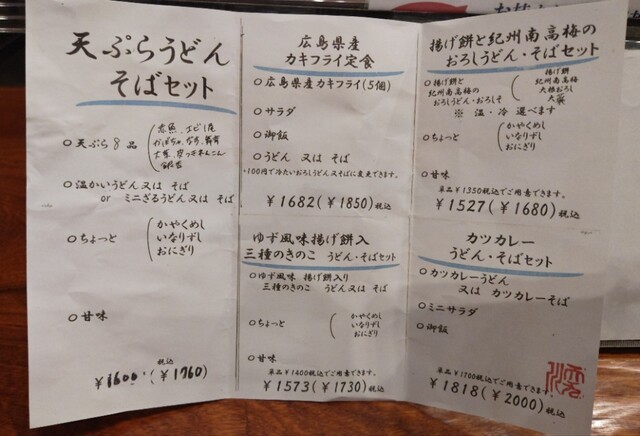 天ぷらうどん
そばセット
○天ぷら8品
大葉
○温かいうどん又は そば
or ミニざるうどん又は そば
○ちょっと
かやくめし
いなりずし
おにぎり
○甘味
税込
¥1600.(¥1760)
広島県産
カキフライ定食
○広島県産カキフライ(5個)
○サラダ
○御飯
○うどん 又は そば
+100円で冷たいおろしうどん又はそばに変更できます。
¥1682(¥1850)税込
ゆず風味揚げ餅入
三種のきのこ うどん・そばセット
○ゆず風味 揚げ餅入り
三種のきのこ うどん又は そば
○ちょっと
かやくめし
いなりずし
おにぎり
○甘味
単品¥1400税込でご用意できます。
¥1573(¥1730)税込
揚げ餅と紀州南高梅の
おろしうどん・そばセット
○揚げ餅と
紀州南高梅の
おろしうどん・おろしそ
揚げ餅
紀州南高梅
大根おろし
大葉
※ 温・冷 選べます ※
○ちょっと
かやくめし
いなりずし
おにぎり
○甘味
単品¥1350税込でご用意できます。
¥1527(¥1680)税込
カツカレー
うどん・そばセット
○カツカレーうどん
又は カツカレーそば
○ミニサラダ
○御飯
単品¥1700税込でご用意できます
¥1818(¥2000)税込